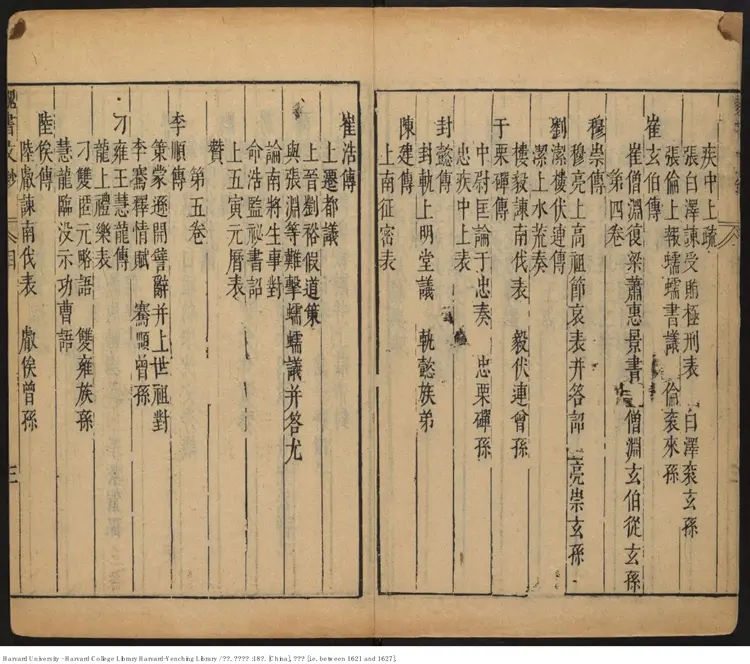 疾中上疏
張白澤諫受賄極刑表 白澤袞玄孫
張倫上報蠕蠕書議 倫袞來孫
崔玄伯傳
崔僧淵復梁蕭惠景書 僧淵玄伯從玄孫
第四卷
穆崇傳
穆亮上高祖節哀表并答詔 亮崇玄孫
劉潔樓伏連傳
潔上水荒奏
樓毅諫南伐表 毅伏連曾孫
于栗磾傳
中尉匡論于忠奏 忠栗磾孫
忠疾中上表
封懿傳
封軌上明堂議 軌懿族弟
陳建傳
上南征密表
崔浩傳
上遷都議
上晉劉裕假道策
與張淵等難擊蠕蠕議并答尤
論南將生事對
命浩監祕書詔
上五寅元曆表
贊
第五卷
李順傳
策蒙遜開讐辭并上世祖對
李騫釋情賦 騫順曾孫
刁雍王慧龍傳
龍上禮樂表
刁雙匿元略語 雙雍族孫
慧龍臨没示功曹語
陸俟傳
陸叡諫南伐表 叡俟曾孫
魏書文鈔
目
三
Harvard University - Harvard College Library Harvard-Yenching Library / ??. ???? :18?. [China], ??? [i.e. between 1621 and 1627].